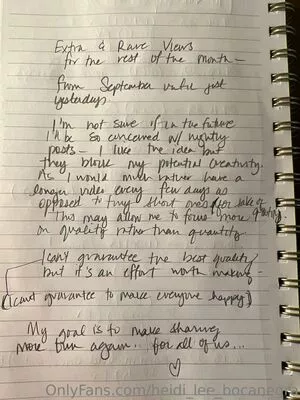 Extra & Rare Views
for the rest of the month -
from September until just
yesterday
I'm not sure if in the future
I'll be so concerned w/ nightly
posts - I like the idea but
they block my potential creativity.
As I would much rather have a
longer video every few days as
opposed to tiny short ones for sake of posting
This may allow me to focus more
on quality rather than quantity.
I can't guarantee the best quality
but it's an effort worth making -
(I can't guarantee to make everyone happy)
My goal is to make sharing
more fun again.. for all of us...
OnlyFans.com/heidi_lee_bocanegra